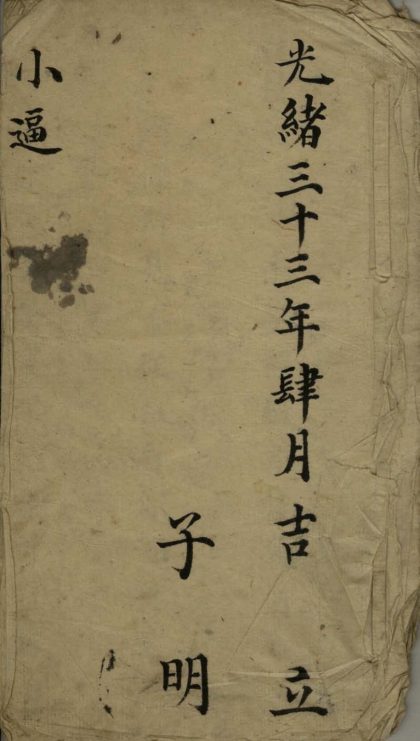 光緒三十三年肆月吉立
子明
小逼